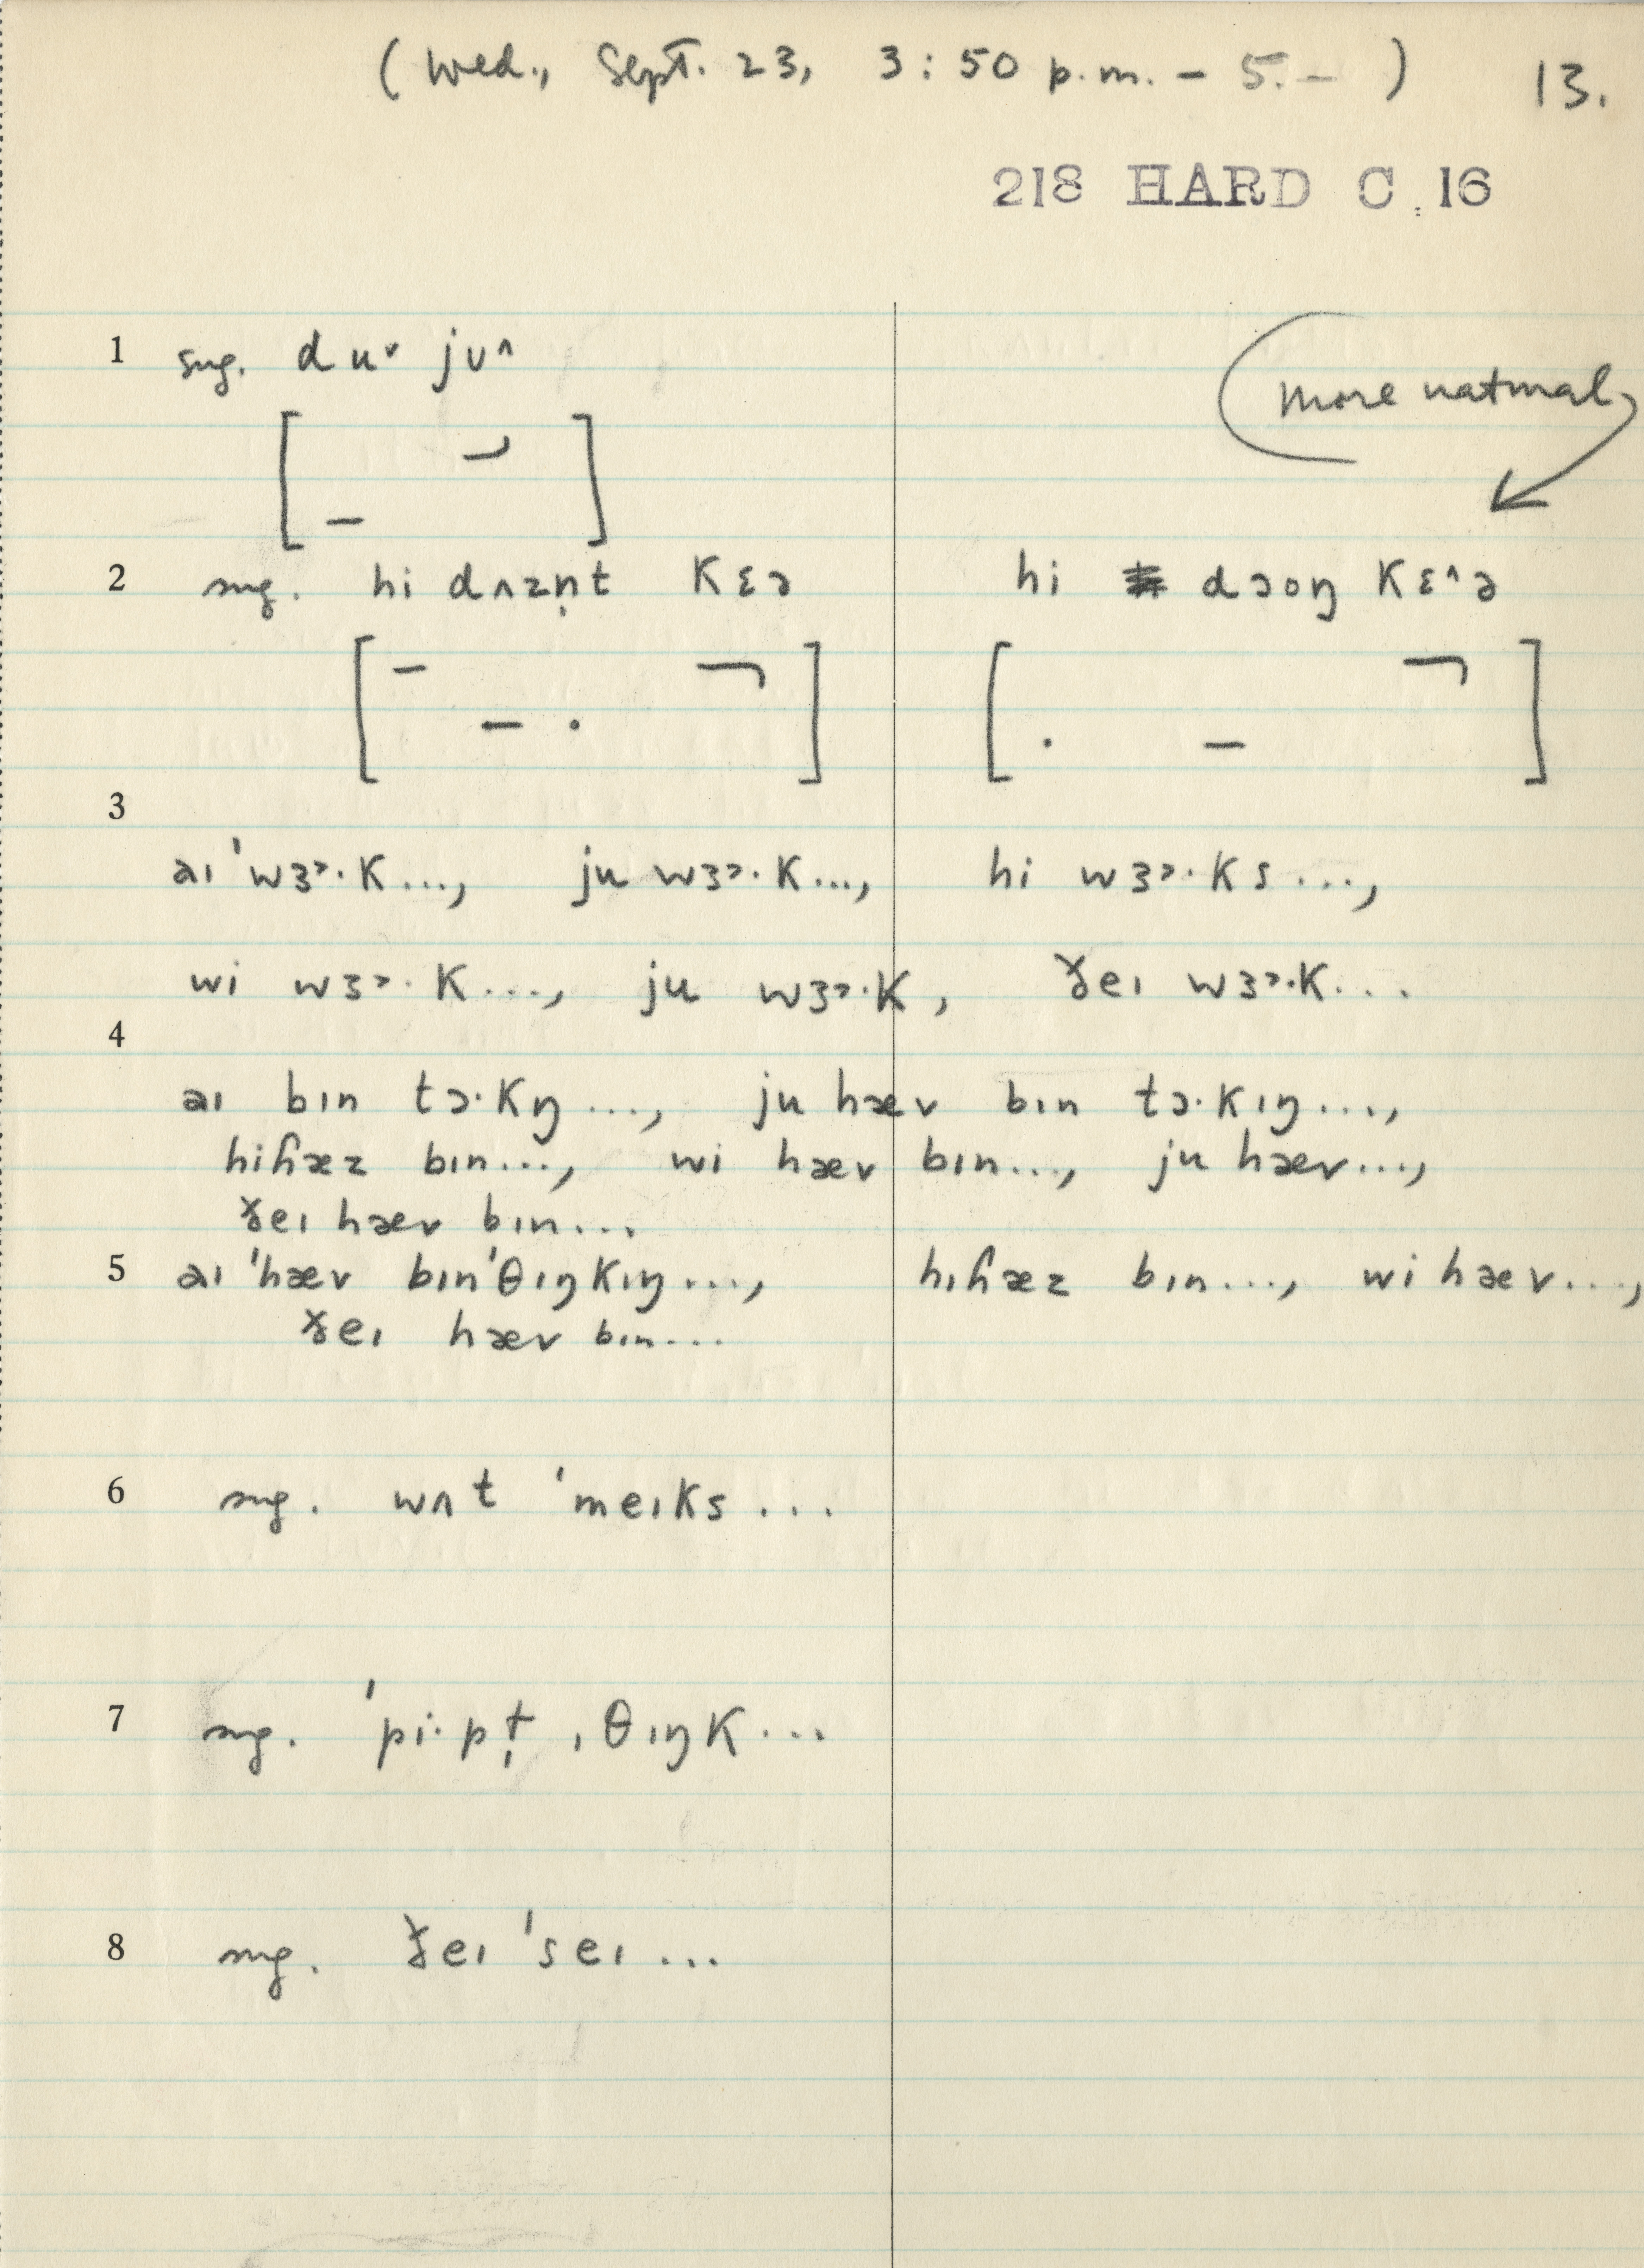 (Wed., Sept. 23, 3:50 p.m. – 5. – ) 13.
218 HARD C. 16
1 sug. duˇ jʊ^
more natural
2 sug. hi dʌzn̩t kɛə hi dɔoŋ kɛ^ə
3
aɪ ˈwɜɚ·k..., ju wɜɚ·k..., hi wɜɚ·ks...,
wi wɜɚ·k..., ju wɜɚ·k, ðeɪ wɜɚ·k...
4
aɪ bɪn tɔ·kŋ..., ju hæv bɪn tɔ·kɪŋ...,
hiɦæz bɪn..., wi hæv bɪn..., ju hæv...,
ðeɪ hæv bɪn...
5 aɪ ˈhæv bɪnˈθɪŋkɪŋ..., hɪɦæz bɪn..., wi hæv...,
ðeɪ hæv bɪn...
6 sug. wʌt ˈmeɪks...
7 sug. ˈpi·pł̩ ˌθɪŋk...
8 sug. ðeɪ ˈseɪ...